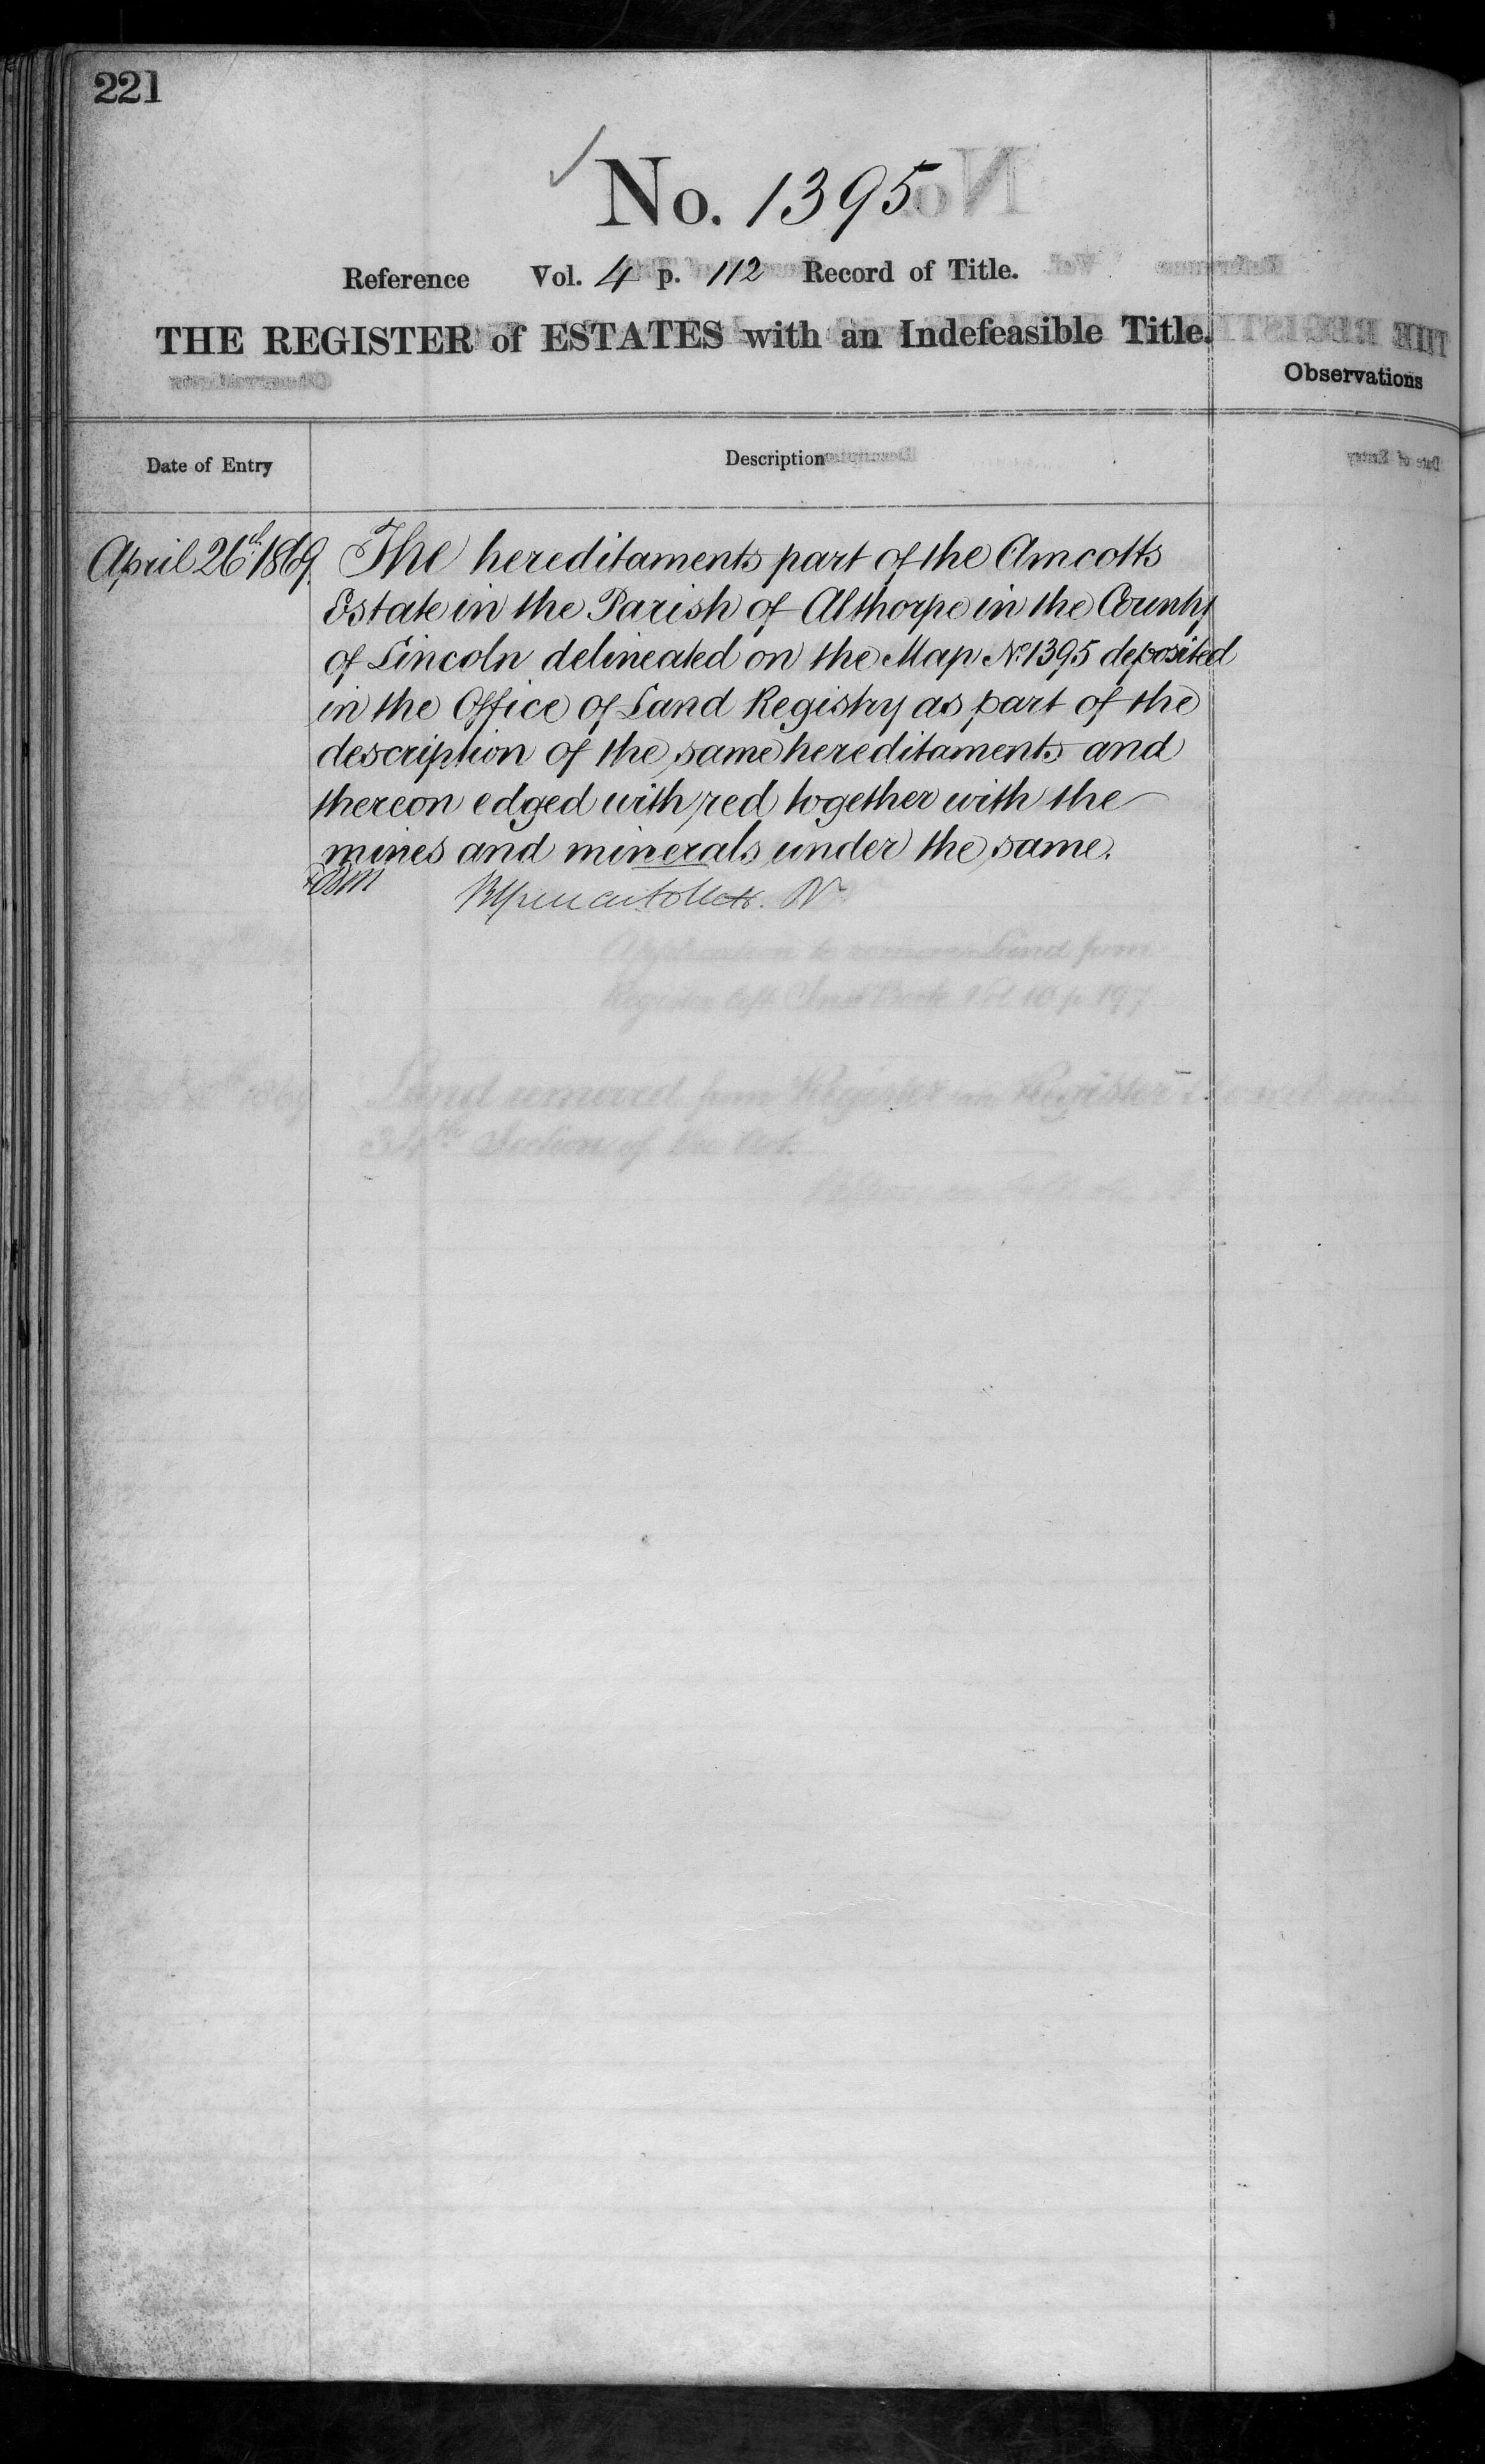 221
No. 1395
Reference Vol. 4 p. 112 Record of Title.
THE REGISTER of ESTATES with an Indefeasible Title.
Observations
Date of Entry
Description
April 26th 1869. The hereditaments part of the Amcotts
Estate in the Parish of Althorpe in the County
of Lincoln delineated on the Map No. 1395 deposited
in the Office of Land Registry as part of the
description of the same hereditaments and
thereon edged with red together with the
mines and minerals under the same.
Application to remove Land from
Register Vol 10 p 197
Land removed from Register on Register
34th Section of the Act.